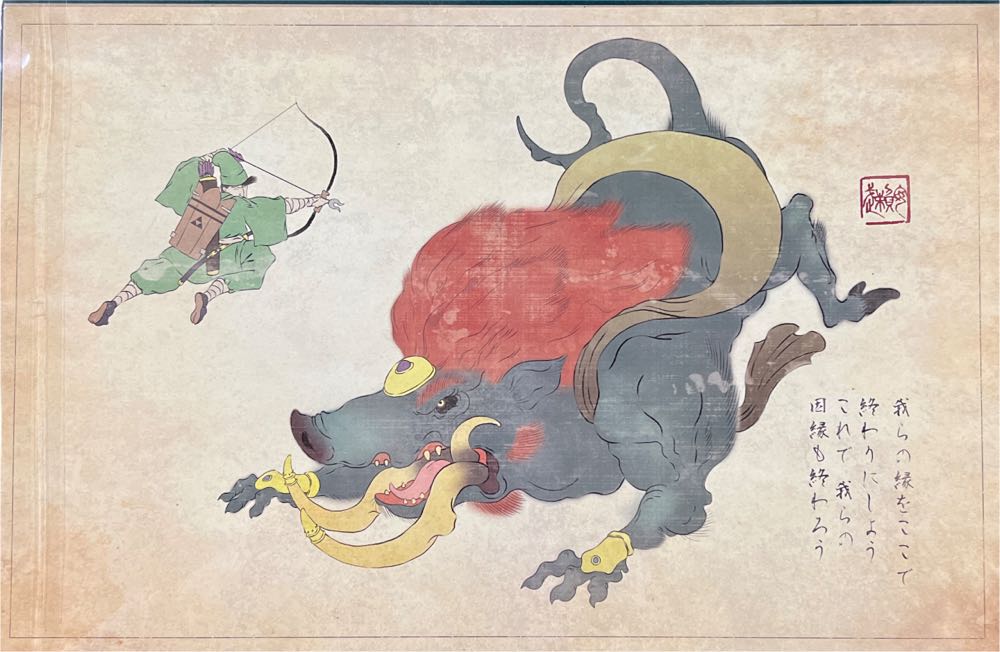 我らの縁をここで
終わりにしよう
これで我らの
因縁も終わろう